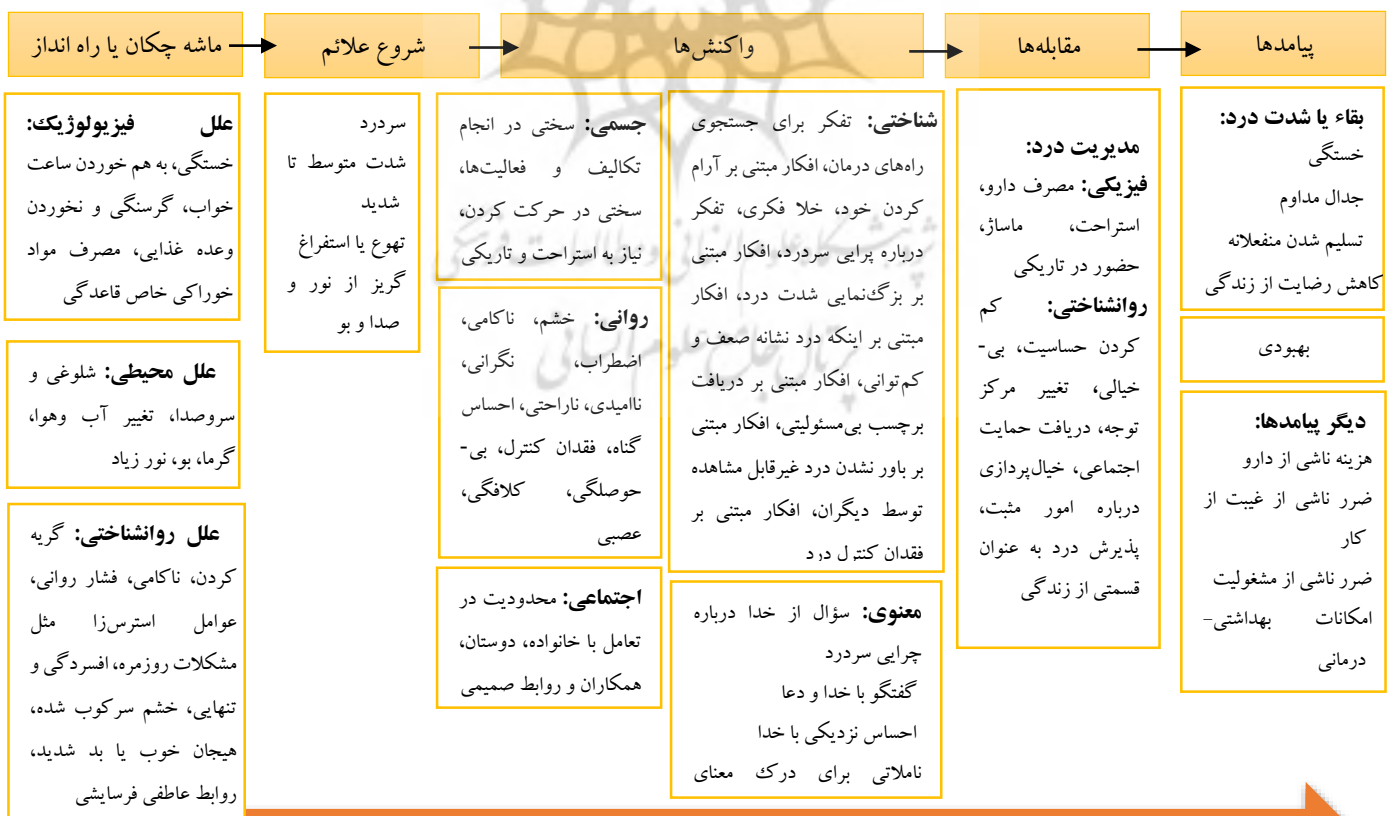 ماشه چکان یا راه انداز
شروع علائم
واکنش‌ها
مقابله‌ها
پیامدها
علل فیزیولوژیک:
خستگی، به هم خوردن ساعت
خواب، گرسنگی و نخوردن
وعده غذایی، مصرف مواد
خوراکی خاص قاعدگی
علل محیطی: شلوغی و
سروصدا، تغییر آب وهوا،
گرما، بو، نور زیاد
علل روانشناختی: گریه
کردن، ناکامی، فشار روانی،
عوامل استرس‌زا مثل
مشکلات روزمره، افسردگی و
تنهایی، خشم سرکوب شده،
هیجان خوب یا بد شدید،
روابط عاطفی فرسایشی
سردرد
شدت متوسط تا
شدید
تهوع یا استفراغ
گریز از نور و
صدا و بو
جسمی: سختی در انجام
تکالیف و فعالیت‌ها،
سختی در حرکت کردن،
نیاز به استراحت و تاریکی
روانی: خشم، ناکامی،
اضطراب، نگرانی،
ناامیدی، ناراحتی، احساس
گناه، فقدان کنترل، بی-
حوصلگی، کلافگی،
عصبی
اجتماعی: محدودیت در
تعامل با خانواده، دوستان،
همکاران و روابط صمیمی
شناختی: تفکر برای جستجوی
راه‌های درمان، افکار مبتنی بر آرام
کردن خود، خلا فکری، تفکر
درباره پرایی سردرد، افکار مبتنی
بر بزگ‌نمایی شدت درد، افکار
مبتنی بر اینکه درد نشانه صعف و
کم‌توانی، افکار مبتنی بر دریافت
برچسب بی‌مسئولیتی، افکار مبتنی
بر باور نشدن درد غیرقابل مشاهده
توسط دیگران، افکار مبتنی بر
فقدان کنترل درد
معنوی: سؤال از خدا درباره
چرایی سردرد
گفتگو با خدا و دعا
احساس نزدیکی با خدا
ناملاتی برای درک معنای
مدیریت درد:
فیزیکی: مصرف دارو،
استراحت، ماساژ،
حضور در تاریکی
روانشناختی: کم
کردن حساسیت، بی-
خیالی، تغییر مرکز
توجه، دریافت حمایت
اجتماعی، خیال‌پردازی
درباره امور مثبت،
پذیرش درد به عنوان
قسمتی از زندگی
بقاء یا شدت درد:
خستگی
جدال مداوم
تسلیم شدن منفعلانه
کاهش رضایت از زندگی
بهبودی
دیگر پیامدها:
هزینه ناشی از دارو
ضرر ناشی از غیبت از
کار
ضرر ناشی از مشغولیت
امکانات بهداشتی-
درمانی
پژوهشگاه علوم انسانی و مطالعات فرهنگی
پرتال جامع علوم انسانی